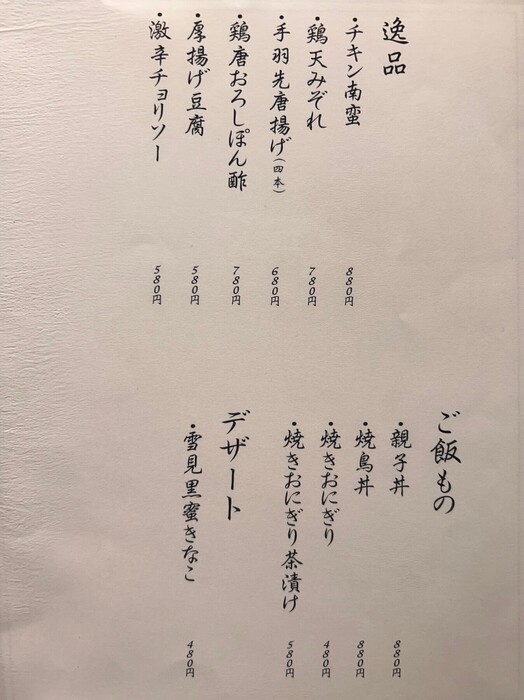 逸品
・チキン南蛮 880円
・鶏天みぞれ 780円
・手羽先唐揚げ(四本) 680円
・鶏唐おろしぽん酢 780円
・厚揚げ豆腐 580円
・激辛チョリソー 580円
ご飯もの
・親子丼 880円
・焼鳥丼 880円
・焼きおにぎり 480円
・焼きおにぎり茶漬け 580円
デザート
・雪見黒蜜きなこ 480円